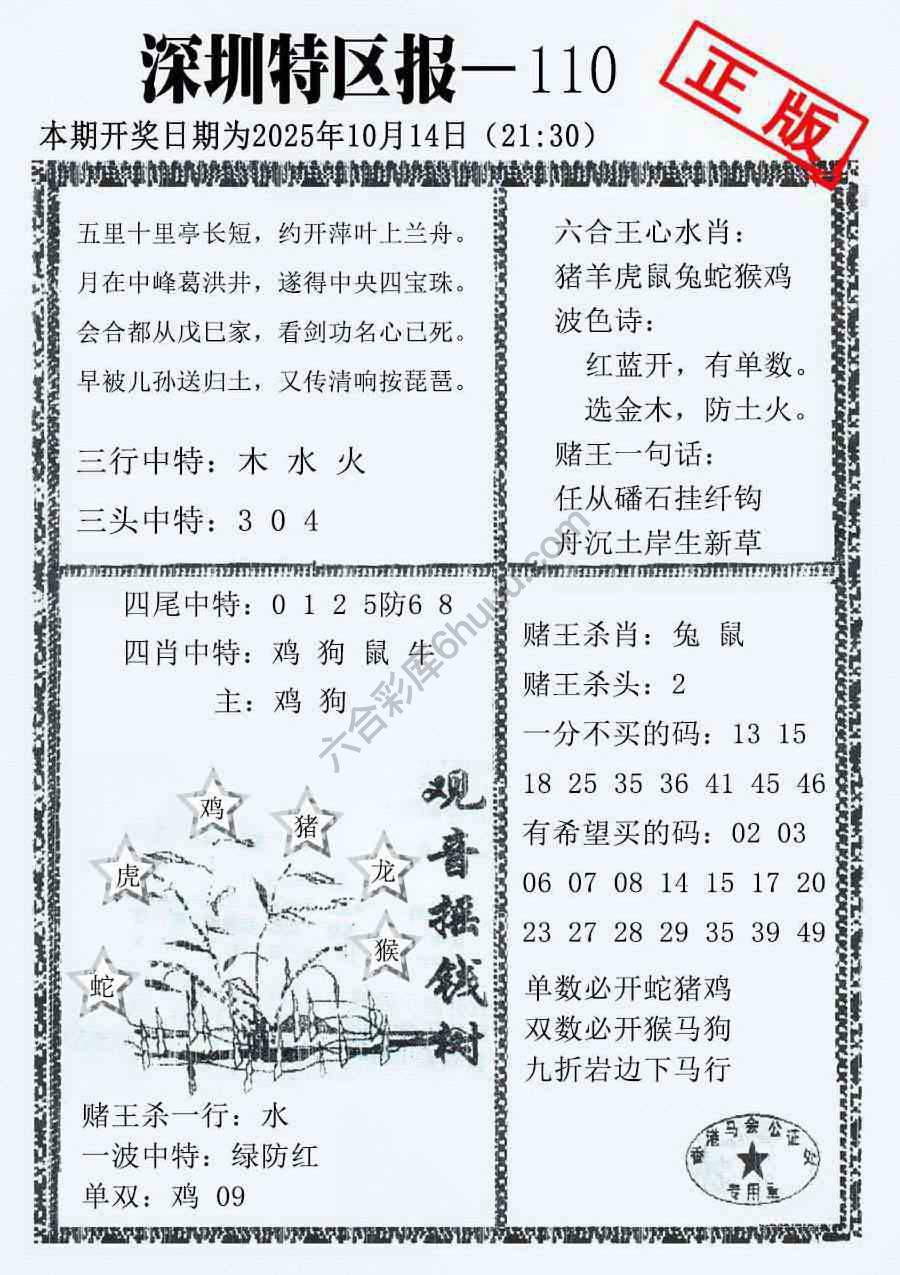 深圳特区报—110
正版
本期开奖日期为2025年10月14日（21:30）
五里十里亭长短，约开萍叶上兰舟。
月在中峰葛洪井，遂得中央四宝珠。
会合都从戊巳家，看剑功名心已死。
早被儿孙送归土，又传清响按琵琶。
三行中特：木 水 火
三头中特：3 0 4
六合王心水肖：
猪羊虎鼠兔蛇猴鸡
波色诗：
红蓝开，有单数。
选金木，防土火。
赌王一句话：
任从磻石挂纤钩
舟沉土岸生新草
四尾中特：0 1 2 5防6 8
四肖中特：鸡 狗 鼠 牛
主：鸡 狗
鸡
猪
虎
龙
猴
蛇
观音摇钱树
赌王杀一行：水
一波中特：绿防红
单双：鸡 09
赌王杀肖：兔 鼠
赌王杀头：2
一分不买的码：13 15
18 25 35 36 41 45 46
有希望买的码：02 03
06 07 08 14 15 17 20
23 27 28 29 35 39 49
单数必开蛇猪鸡
双数必开猴马狗
九折岩边下马行
香港马会公证处
专用章
六合彩库6huu.com